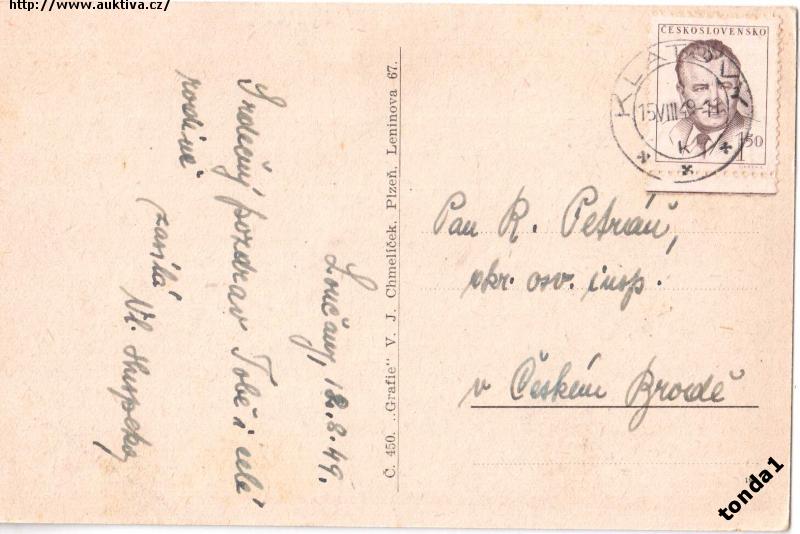 http://www.auktiva.cz/
Loučany, 12.8.49.
Srdečný pozdrav Tobě i celé
rodině
zasílá
Vl.
Č. 450. „Grafie" V. J. Chmelíček, Plzeň, Leninova 67.
ČESKOSLOVENSKO
1·50
KLATOVY
15.VIII.49-11
k
Pan R. Petráň,
okr. osv. insp.
v Českém Brodě
tonda1